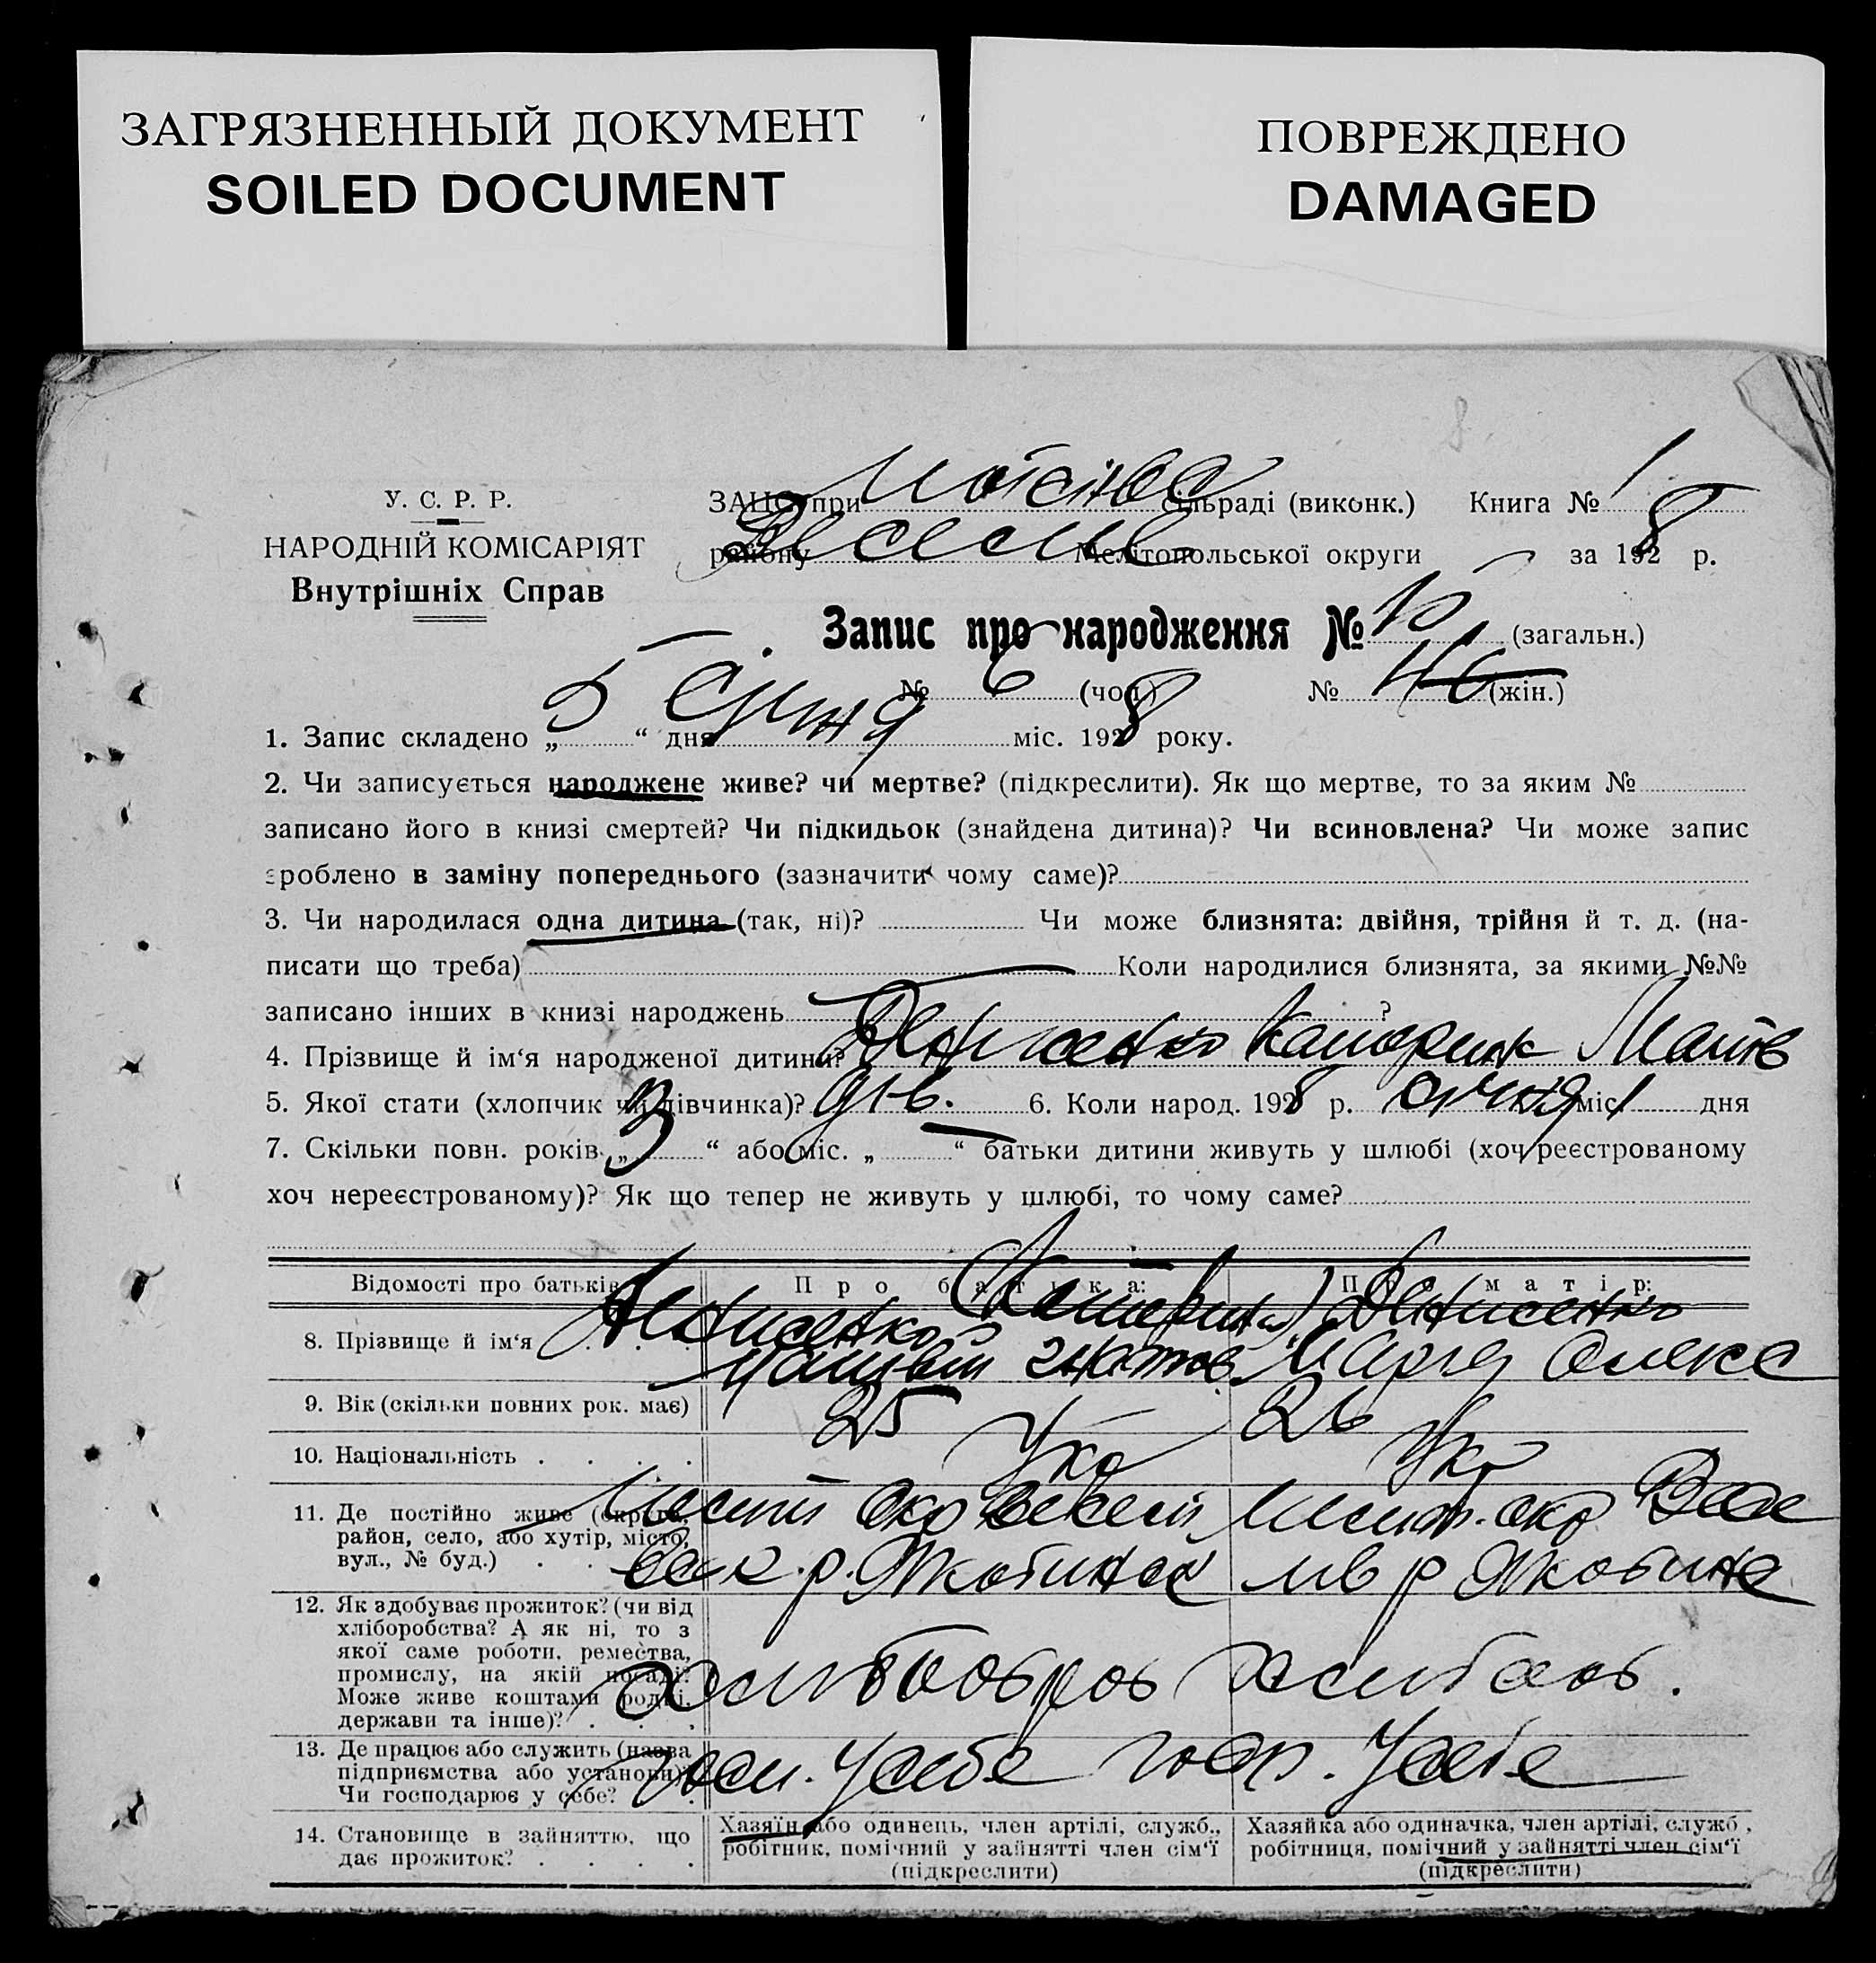 ЗАГРЯЗНЕННЫЙ ДОКУМЕНТ
SOILED DOCUMENT
ПОВРЕЖДЕНО
DAMAGED
У. С. Р. Р.
НАРОДНІЙ КОМІСАРІЯТ
Внутрішніх Справ
ЗАЦС при сільраді (виконк.) Книга № 1
району Мелітопольської округи за 1928 р.
Запис про народження № (загальн.)
№ 6 (чол.) № (жін.)
1. Запис складено „ 5 “ дня січня міс. 1928 року.
2. Чи записується народжене живе? чи мертве? (підкреслити). Як що мертве, то за яким №
записано його в книзі смертей? Чи підкидьок (знайдена дитина)? Чи всиновлена? Чи може запис
зроблено в заміну попереднього (зазначити чому саме)?
3. Чи народилася одна дитина (так, ні)? Чи може близнята: двійня, трійня й т. д. (на-
писати що треба) Коли народилися близнята, за якими №№
записано інших в книзі народжень ?
4. Прізвище й ім‘я народженої дитини? Денисенко Катерина Матв
5. Якої стати (хлопчик чи дівчинка)? дів. 6. Коли народ. 1928 р. січня міс. 1 дня
7. Скільки повн. років „ 3 “ або міс. „ “ батьки дитини живуть у шлюбі (хоч реєстрованому
хоч нереєстрованому)? Як що тепер не живуть у шлюбі, то чому саме?
Відомості про батьків Про батька: Про матір:
(Катерина)
8. Прізвище й ім‘я . . . Денисенко Денисенко
Матвій Гнатов Марія Олекс
9. Вік (скільки повних рок. має) 25 26
10. Національність . . . . Укр Укр
11. Де постійно живе (округа, район, село, або хутір, місто, вул., № буд.) . . Меліт окр Меліт. окр
р. р
12. Як здобуває прожиток? (чи від хліборобства? А як ні, то з якої саме роботи, ремества, промислу, на якій посаді? Може живе коштами родні, держави та інше)? . . .
13. Де працює або служить (назва підприємства або установи)? Чи господарює у себе? . у себе у себе
14. Становище в зайняттю, що дає прожиток? . . . .
Хазяїн або одинець, член артілі, служб., робітник, помічний у зайнятті член сім‘ї (підкреслити)
Хазяйка або одиначка, член артілі, служб., робітниця, помічний у зайнятті член сім‘ї (підкреслити)